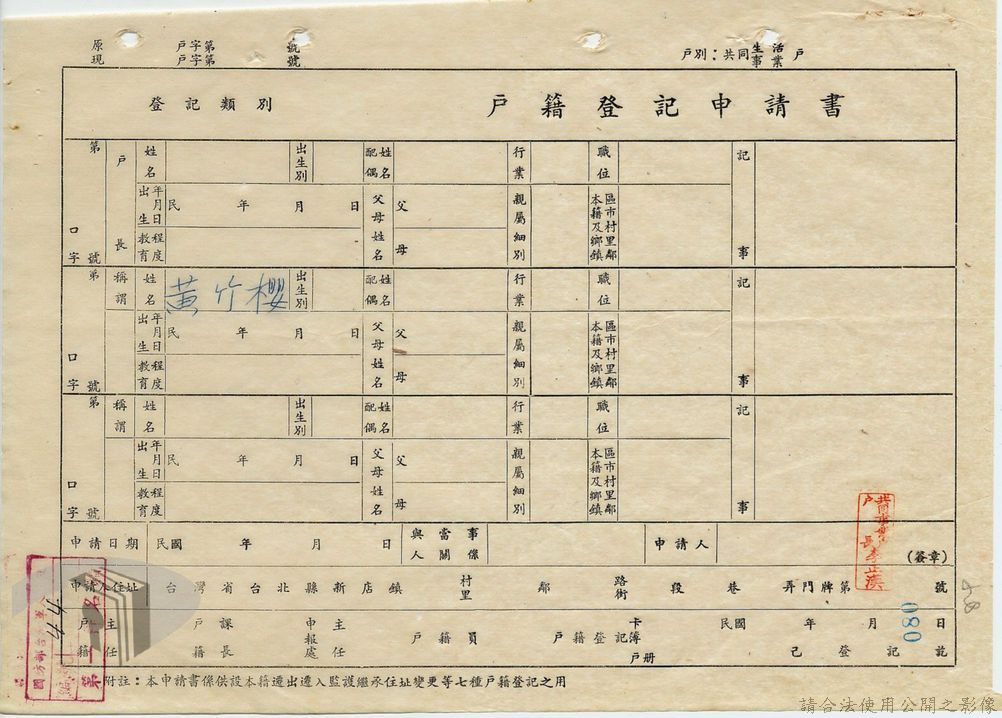 原 戶字第 號
現 戶字第 號
戶別：共同生活戶
事業
登記類別
戶籍登記申請書
第 口 號 字
戶長
姓名
出生別
配偶姓名
行業
職位
記事
出生年月日
民 年 月 日
父母姓名
父
母
親屬細別
本籍及鄉鎮區市村里鄰
教育程度
第 口 號 字
稱謂
姓名
黃竹櫻
出生別
配偶姓名
行業
職位
記事
出生年月日
民 年 月 日
父母姓名
父
母
親屬細別
本籍及鄉鎮區市村里鄰
教育程度
第 口 號 字
稱謂
姓名
出生別
配偶姓名
行業
職位
記事
出生年月日
民 年 月 日
父母姓名
父
母
親屬細別
本籍及鄉鎮區市村里鄰
教育程度
申請日期 民國 年 月 日
與當事人關係
申請人
(簽章)
申請人住址 台灣省台北縣新店鎮 村里 鄰 路街 段 巷 弄門牌第 號
戶籍主任
戶籍課長
申報處主任
戶籍員
戶籍登記簿
卡
戶冊
民國 年 月 日
080
己登記訖
附註：本申請書係供設本籍遷出遷入監護繼承住址變更等七種戶籍登記之用
請合法使用公開之影像